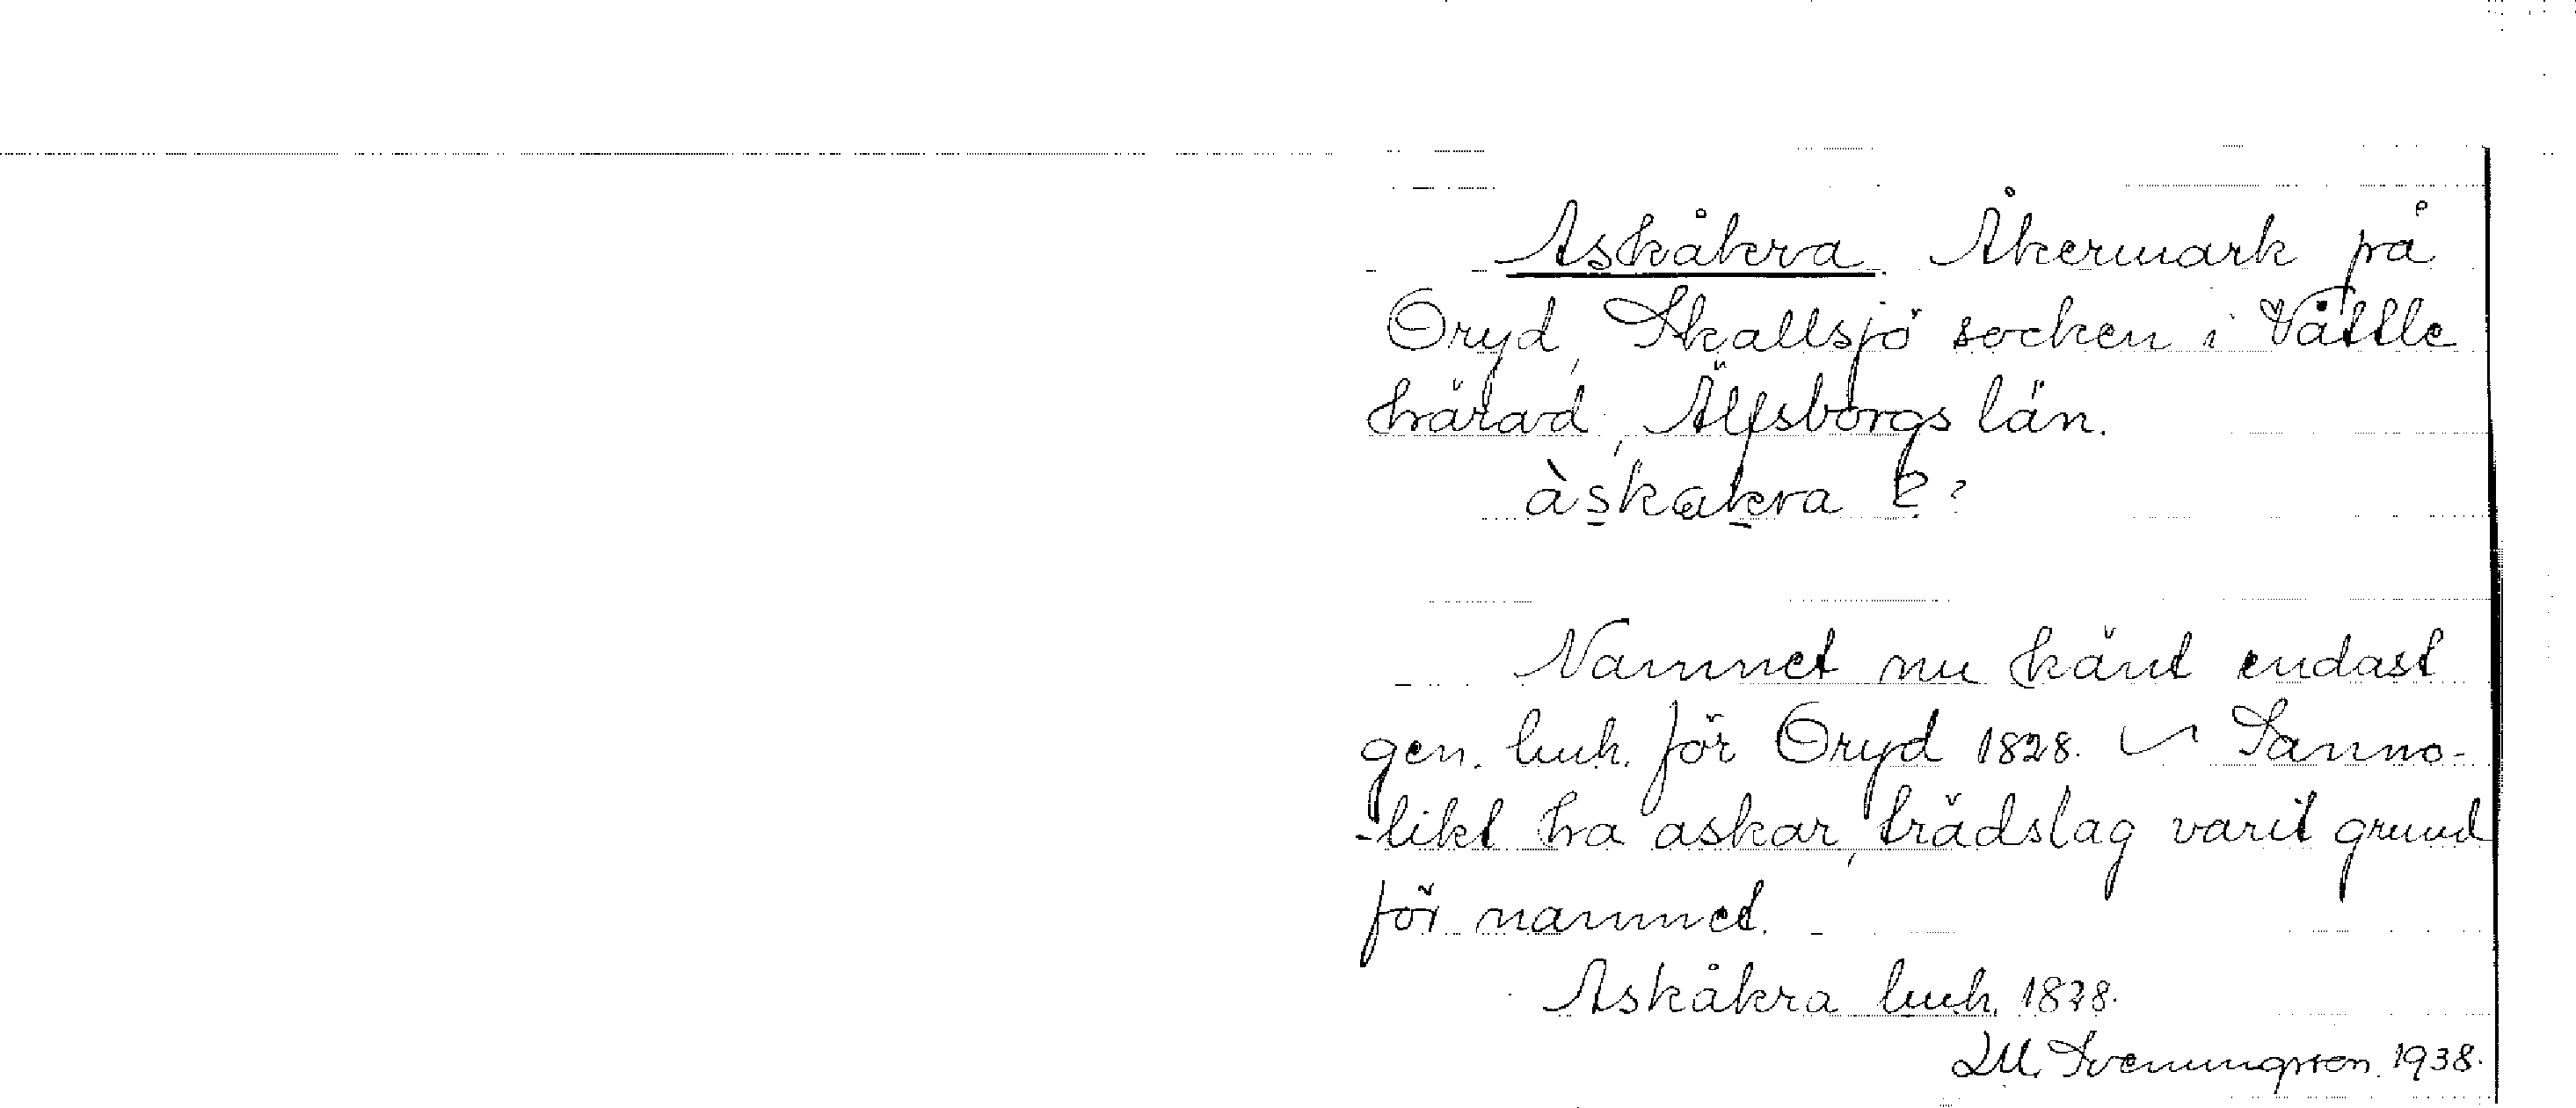 Askåkra. Åkermark på
Oryd, Skallsjö socken i Vättle
härad, Älfsborgs län.
àskakra ?
Namnet nu känt endast
gen. lmh. för Oryd 1828. Sanno-
-likt ha askar, trädslag varit grund
för namnet.
Askåkra lmh. 1828.
Svenningsson 1938.